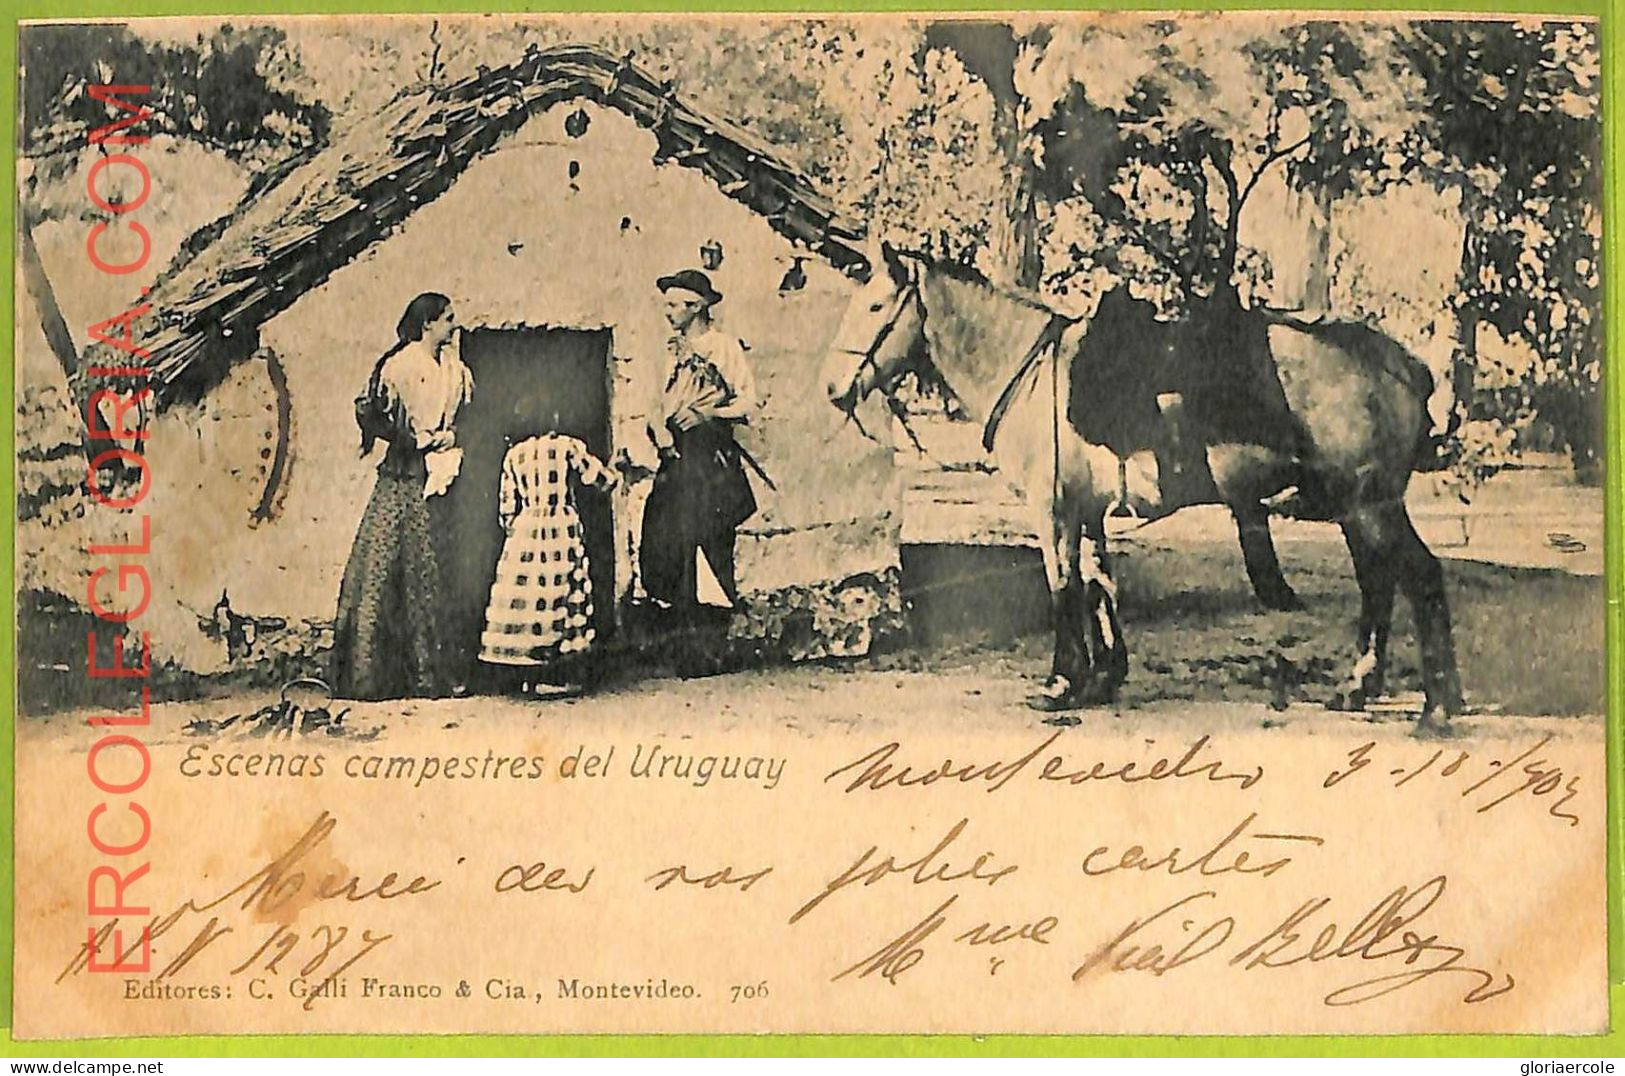 ERCOLEGLORIA.COM
Escenas campestres del Uruguay
Montevideo 3-10-1902
Merci de vos jolies cartes
A.P. N 1287
Mme
Editores: C. Galli Franco & Cia, Montevideo. 706
delcampe.net
gloriaercole